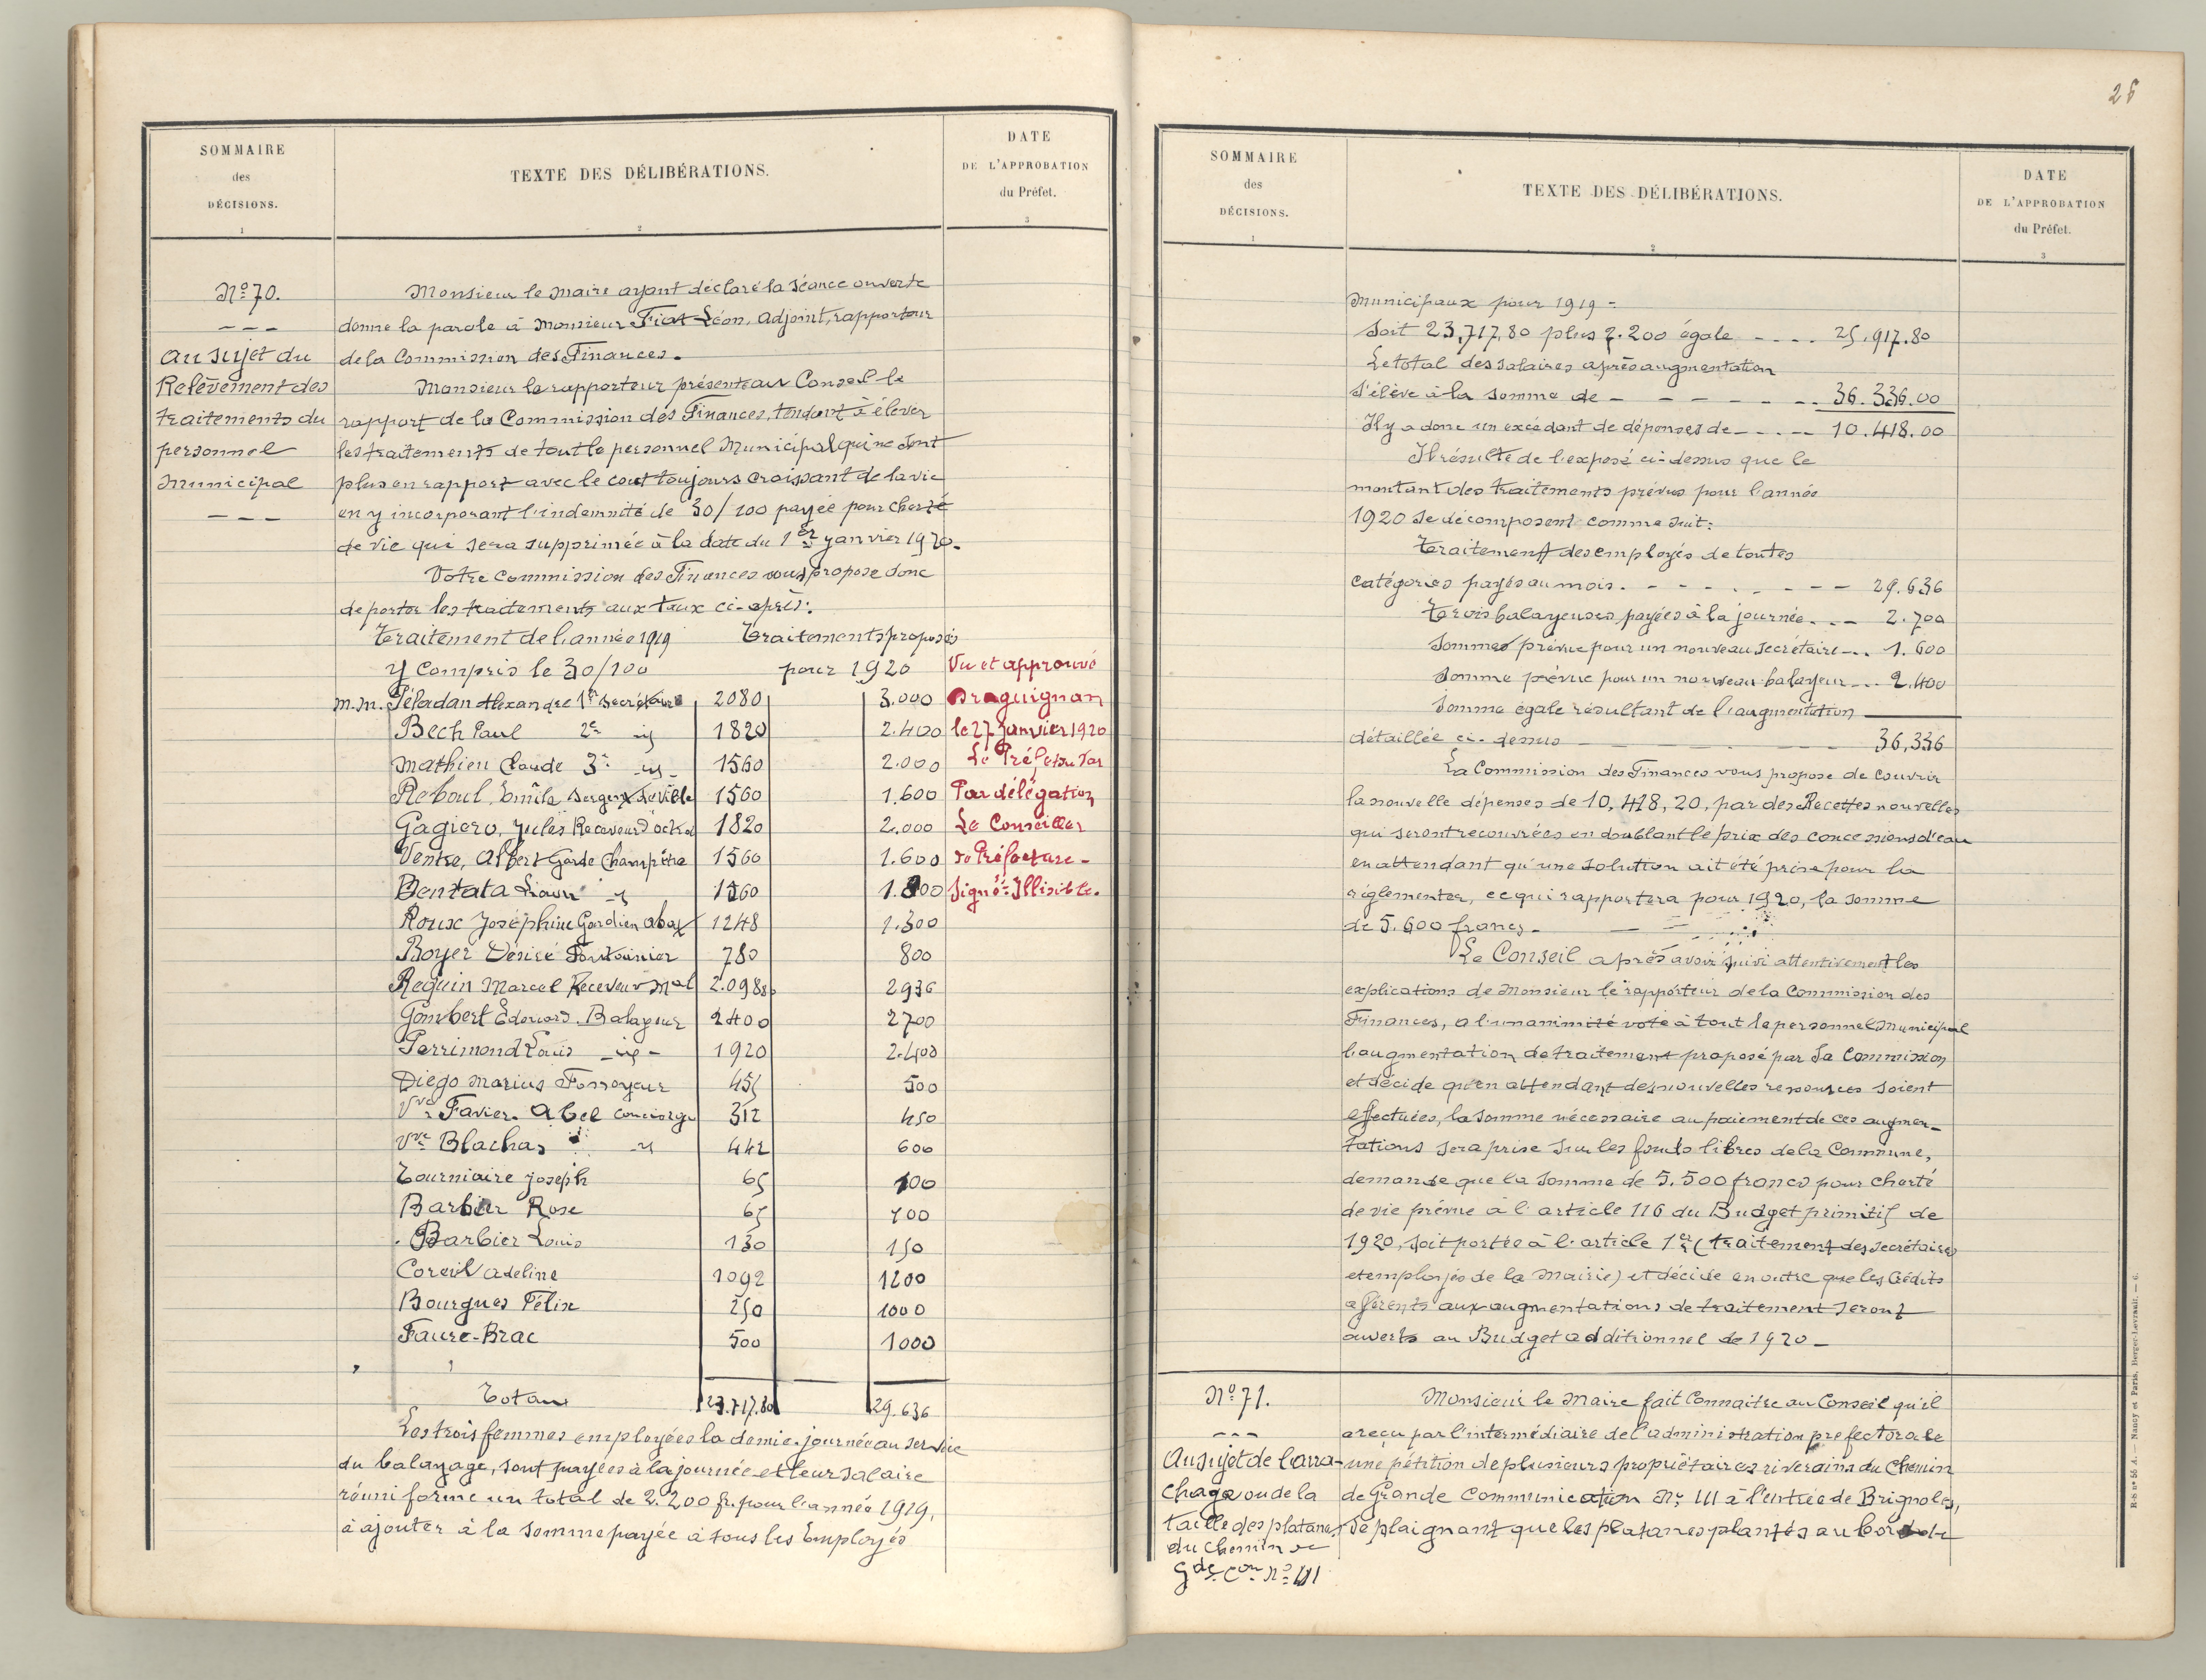 SOMMAIRE
des
DÉCISIONS.
1
TEXTE DES DÉLIBÉRATIONS.
2
DATE
DE L'APPROBATION
du Préfet.
3
No 70.
Au sujet du
Relèvement des
traitements du
personnel
Municipal
Monsieur le Maire ayant déclaré la séance ouverte
donne la parole à Monsieur Fiat Léon, Adjoint, rapporteur
de la Commission des Finances.
Monsieur le rapporteur présente au Conseil le
rapport de la Commission des Finances, tendant à élever
les traitements de tout le personnel Municipal qui ne sont
plus en rapport avec le cout toujours croissant de la vie
en y incorporant l'indemnité de 30/100 payée pour cherté
de vie qui sera supprimée à la date du 1er janvier 1920.
Votre Commission des Finances vous propose donc
de porter les traitements aux taux ci-après:
Traitement de l'année 1919 Traitements proposés
y compris le 30/100 pour 1920
M.M. Péladan Alexandre 1er Secrétaire 2080 3.000
Bech Paul 2e id 1820 2.400
Mathieu Claude 3e id 1560 2.000
Reboul, Emile Sergent de ville 1560 1.600
Gagiero, Jules Receveur d'octroi 1820 2.000
Ventre, Albert Garde Champêtre 1560 1.600
Bentata Liaou id 1560 1.800
Roux Joséphine Gardien abat 1248 1.300
Boyer Désiré Fontainier 780 800
Reguin Marcel Receveur Mal 2.098 80 2936
Gombert Edouard. Balayeur 2400 2700
Perrimond Louis id 1920 2.400
Diego Marius Fossoyeur 455 500
Vve Favier. Abel concierge 312 450
Vve Blachas id 442 600
Tourniaire Joseph 65 100
Barbier Rose 65 100
Barbier Louis 130 150
Coreil Adeline 1092 1200
Bourgues Félix 250 1000
Faure-Brac 500 1000
Totaux 23.717.80 29.636
Vu et approuvé
Draguignan
le 27 Janvier 1920
Le Préfet du Var
Par délégation
Le Conseiller
de Préfecture
Signé: Illisible.
Les trois femmes employées la demie-journée au service
du balayage, sont payées à la journée et leur salaire
réuni forme un total de 2.200 fr. pour l'année 1919,
à ajouter à la somme payée à tous les Employés
SOMMAIRE
des
DÉCISIONS.
1
TEXTE DES DÉLIBÉRATIONS.
2
DATE
DE L'APPROBATION
du Préfet.
3
Municipaux pour 1919 -
Soit 23,717,80 plus 2.200 égale 25.917.80
Le total des salaires après augmentation
s'élève à la somme de 36.336.00
Il y a donc un excédant de dépenses de 10.418.00
Il résulte de l'exposé ci-dessus que le
montant des traitements prévus pour l'année
1920 se décomposent comme suit:
Traitement des employés de toutes
catégories payés au mois. 29.636
Trois balayeuses payées à la journée 2.700
Somme prévue pour un nouveau secrétaire 1.600
Somme prévue pour un nouveau balayeur 2.400
Somme égale résultant de l'augmentation
détaillée ci-dessus 36,336
La Commission des Finances vous propose de couvrir
la nouvelle dépenses de 10,418,20, par des Recettes nouvelles
qui seront recouvrées en doublant le prix des concessions d'eau
en attendant qu'une solution ait été prise pour la
réglementer, ce qui rapportera pour 1920, la somme
de 5.600 francs -
Le Conseil après avoir suivi attentivement les
explications de Monsieur le rapporteur de la Commission des
Finances, a l'unanimité vote à tout le personnel Municipal
l'augmentation de traitement proposé par la Commission
et décide qu'en attendant des nouvelles ressources soient
effectuées, la somme nécessaire au paiement de ces augmen-
tations sera prise sur les fonds libres de la Commune,
demande que la somme de 5.500 francs pour cherté
de vie prévue à l'article 116 du Budget primitif de
1920, soit portée à l'article 1er (traitement des secrétaires
et employés de la Mairie) et décide en outre que les Crédits
afférents aux augmentations de traitement seront
ouverts au Budget additionnel de 1920 -
No 71.
Au sujet de l'arra-
chage ou de la
taille des platanes
du Chemin de
Gde Con No 111
Monsieur le Maire fait Connaitre au Conseil qu'il
a reçu par l'intermédiaire de l'administration préfectorale
une pétition de plusieurs propriétaires riverains du Chemin
de Grande Communication No 111 à l'entrée de Brignoles,
se plaignant que les platanes plantés au bord de
R-S no 55 A. — Nancy et Paris, Berger-Levrault. — 6.